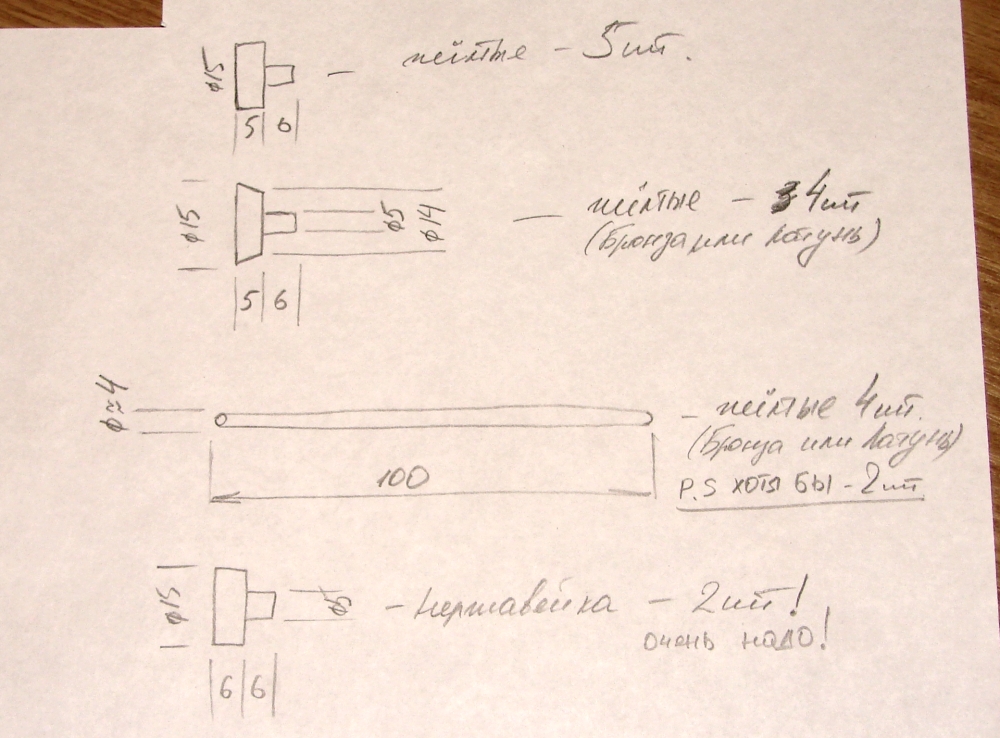 φ15
— жёлтые – 5шт.
5 6
φ15
φ5 φ14
— жёлтые – 4шт
(Бронза или латунь)
5 6
φ≈4
– жёлтые 4шт.
(Бронза или латунь)
100
P.S хотя бы – 2шт
φ15
φ5
– Нержавейка – 2шт!
очень надо!
6 6